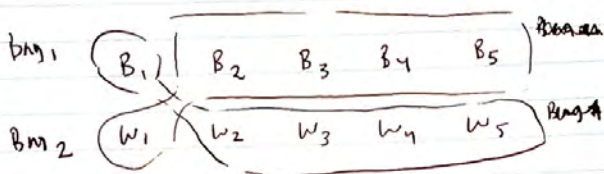 Bag 1 B1 B2 B3 B4 B5
Bag 2 W1 W2 W3 W4 W5